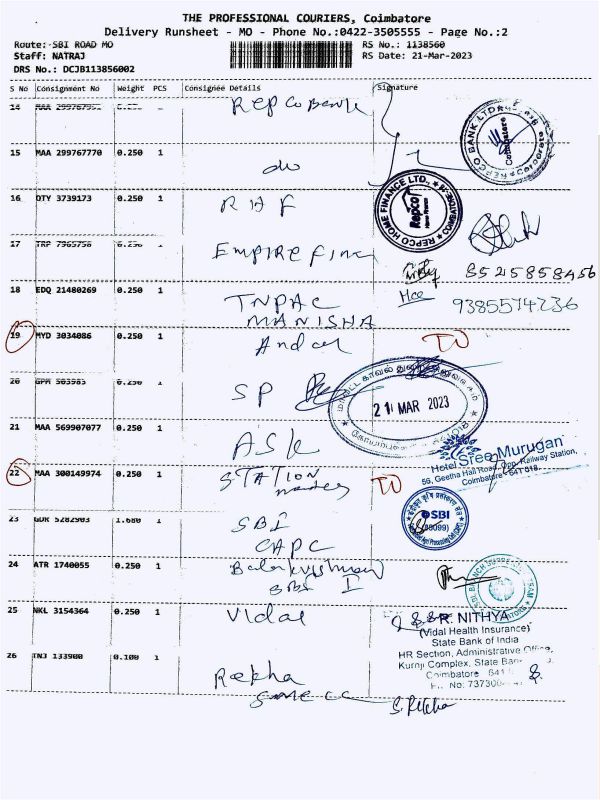 THE PROFESSIONAL COURIERS, Coimbatore
Delivery Runsheet - MO - Phone No.:0422-3505555 - Page No.:2
Route: SBI ROAD MO
RS No.: 1138560
Staff: NATRAJ
RS Date: 21-Mar-2023
DRS No.: DCJB113856002
S No Consignment No Weight PCS Consignée Details Signature
14 MAA Repco Bank
REPCO BANK LTD Coimbatore Corporate
15 MAA 299767770 0.250 1 do
16 DTY 3739173 0.250 1 RHF
REPCO HOME FINANCE LTD., COIMBATORE Repco Home Finance
17 TRP 7965758 0.250 1 EMPIRE Finc
8525858456
18 EDQ 21480269 0.250 1 TNPAC
MANISHA
Hce 9385574236
19 MYD 3034086 0.250 1
20 GPM 503983 0.250 1 SP
21 MAR 2023
21 MAA 569907077 0.250 1 ASK
Hotel Sree Murugan
56, Geetha Hall Road, Opp. Railway Station,
Coimbatore - 641 018.
22 MAA 300149974 0.250 1 STATION
23 GDR 5282903 1.680 1 SBI
CAPC
SBI
24 ATR 1740055 0.250 1 Balakrishnan
SBI
25 NKL 3154364 0.250 1 Vidal
R. NITHYA
(Vidal Health Insurance)
State Bank of India
HR Section, Administrative Office,
Kurnji Complex, State Bank
Coimbatore 641
26 TNJ 133900 0.100 1 Rekha
S. Rekha